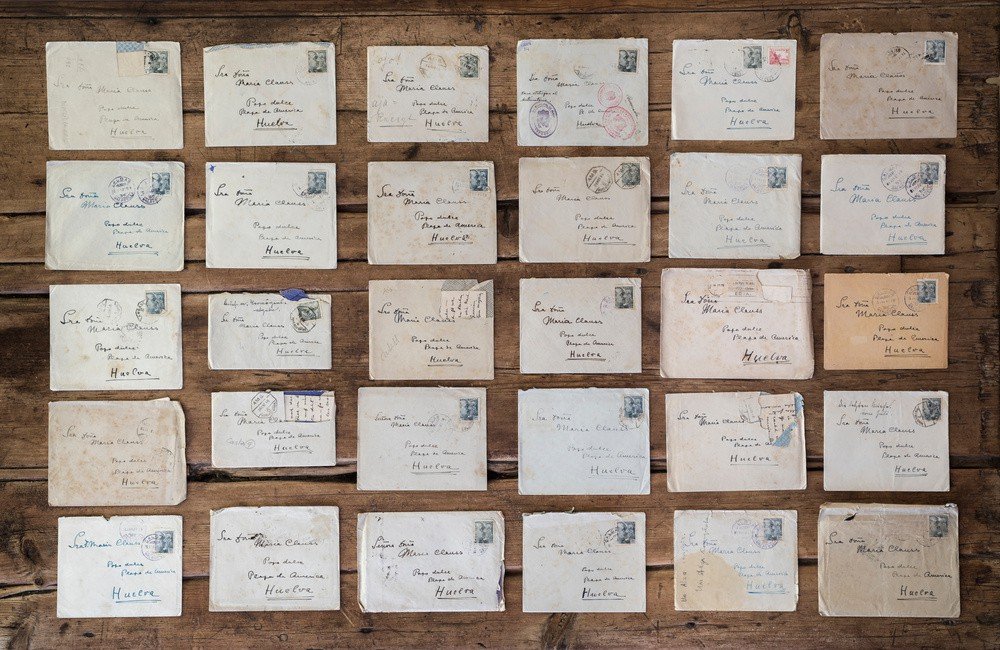 Sra Doña
Maria Clauss
Pozo dulce
Plaza de America
Huelva
Sra Doña
Maria Clauss
Pozo dulce
Plaza de America
Huelva
Sra Doña
Maria Clauss
Pozo dulce
Plaza de America
Huelva
Sra Doña
Maria Clauss
Pozo dulce
Huelva
Sra Doña
Maria Clauss
Pozo dulce
Plaza de America
Huelva
Sra Doña
Maria Clauss
Pozo dulce
Plaza de America
Huelva
Sra Doña
Maria Clauss
Pozo dulce
Plaza de America
Huelva
Sra Doña
Maria Clauss
Pozo dulce
Plaza de America
Huelva
Sra Doña
Maria Clauss
Pozo dulce
Plaza de America
Huelva
Sra Doña
Maria Clauss
Pozo dulce
Plaza de America
Huelva
Sra Doña
Maria Clauss
Pozo dulce
Plaza de America
Huelva
Sra Doña
Maria Clauss
Pozo dulce
Plaza de America
Huelva
Sra Doña
Maria Clauss
Pozo dulce
Plaza de America
Huelva
Sra Doña
Maria Clauss
Pozo dulce
Plaza de America
Huelva
Sra Doña
Maria Clauss
Pozo dulce
Plaza de America
Huelva
Sra Doña
Maria Clauss
Pozo dulce
Plaza de America
Huelva
Sra Doña
Maria Clauss
Pozo dulce
Plaza de America
Huelva
Sra Doña
Maria Clauss
Pozo dulce
Plaza de America
Huelva
Sra Doña
Maria Clauss
Pozo dulce
Plaza de America
Huelva
Sra Doña
Maria
Pozo dulce
Plaza de America
Huelva
Señora Doña
Maria Clauss
Pozo dulce
Plaza de America
Huelva
Sra Doña
Maria Clauss
Pozo dulce
Plaza de America
Huelva
Sra Doña
Maria Clauss
Pozo dulce
Plaza de
Huelva
Sra Doña
Maria Clauss
Pozo dulce
Plaza de America
Huelva
Sra Maria Clauss
Pozo dulce
Plaza de America
Huelva
Sra Doña
Maria Clauss
Pozo dulce
Plaza de America
Huelva
Señora Doña
Maria Clauss
Pozo dulce
Plaza de America
Huelva
Sra Doña
Maria Clauss
Pozo dulce
Plaza de America
Huelva
Sra Doña
Maria Clauss
Pozo dulce
Plaza de America
Huelva
Sra Doña
Maria Clauss
Pozo dulce
Plaza de America
Huelva